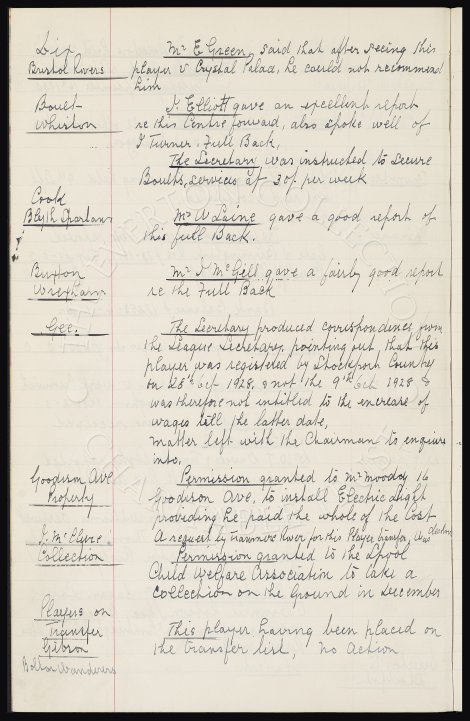 Dix
Bristol Rovers
Mr E Green, said that after seeing this
player v Crystal Palad, he could not recommend
him
Bouet-
Whiston
J. Elliott gave an excellent report
re this Centre forward, also spoke well of
J Turner: Full Back.
The Secretary was instructed to secure
services at 30/- per week
Cook
Blyth Spartans
Mr W Laine gave a good report of
this full Back.
Buxton
Wrexham
Mr J McGill gave a fairly good report
re the Full Back
Gee.
The Secretary produced correspondence from
the League Secretary, pointing out, that this
player was registered by Stockport County
on 25th Oct 1928, & not the 9th Oct 1928 &
was therefore not entitled to the encrease of
wages till the latter date,
matter left with the Chairman to enquire
into.
Goodison Ave
Property
Permission granted to Mr Moody 16
Goodison Ave, to install Electric Light
providing he paid the whole of the Cost
J. McClure.
A request by Tranmere Rover for this Player Transfer, was
Collection
Permission granted to the Lpool
Child Welfare Association to take a
Collection on the Ground in December
Players on
Transfer
Gibson
Bolton Wanderers
This player having been placed on
the transfer list, no action
EVERTON COLLECTION